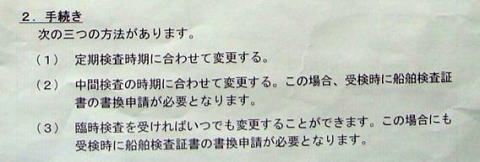 ２．手続き
次の三つの方法があります。
（１）　定期検査時期に合わせて変更する。
（２）　中間検査の時期に合わせて変更する。この場合、受検時に船舶検査証
書の書換申請が必要となります。
（３）　臨時検査を受ければいつでも変更することができます。この場合にも
受検時に船舶検査証書の書換申請が必要となります。